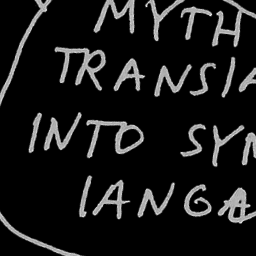 MYTH
TRANSLA
INTO SYM
LANGA